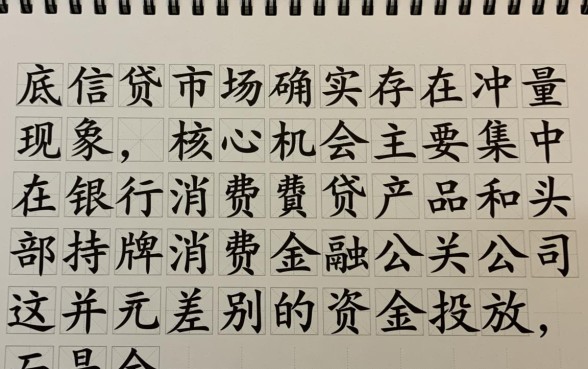 底信贷市场确实存在冲量
现象，核心机会主要集中
在银行消费費贷产品和头
部持牌消费金融公关公司
这并元差别的资金投放，